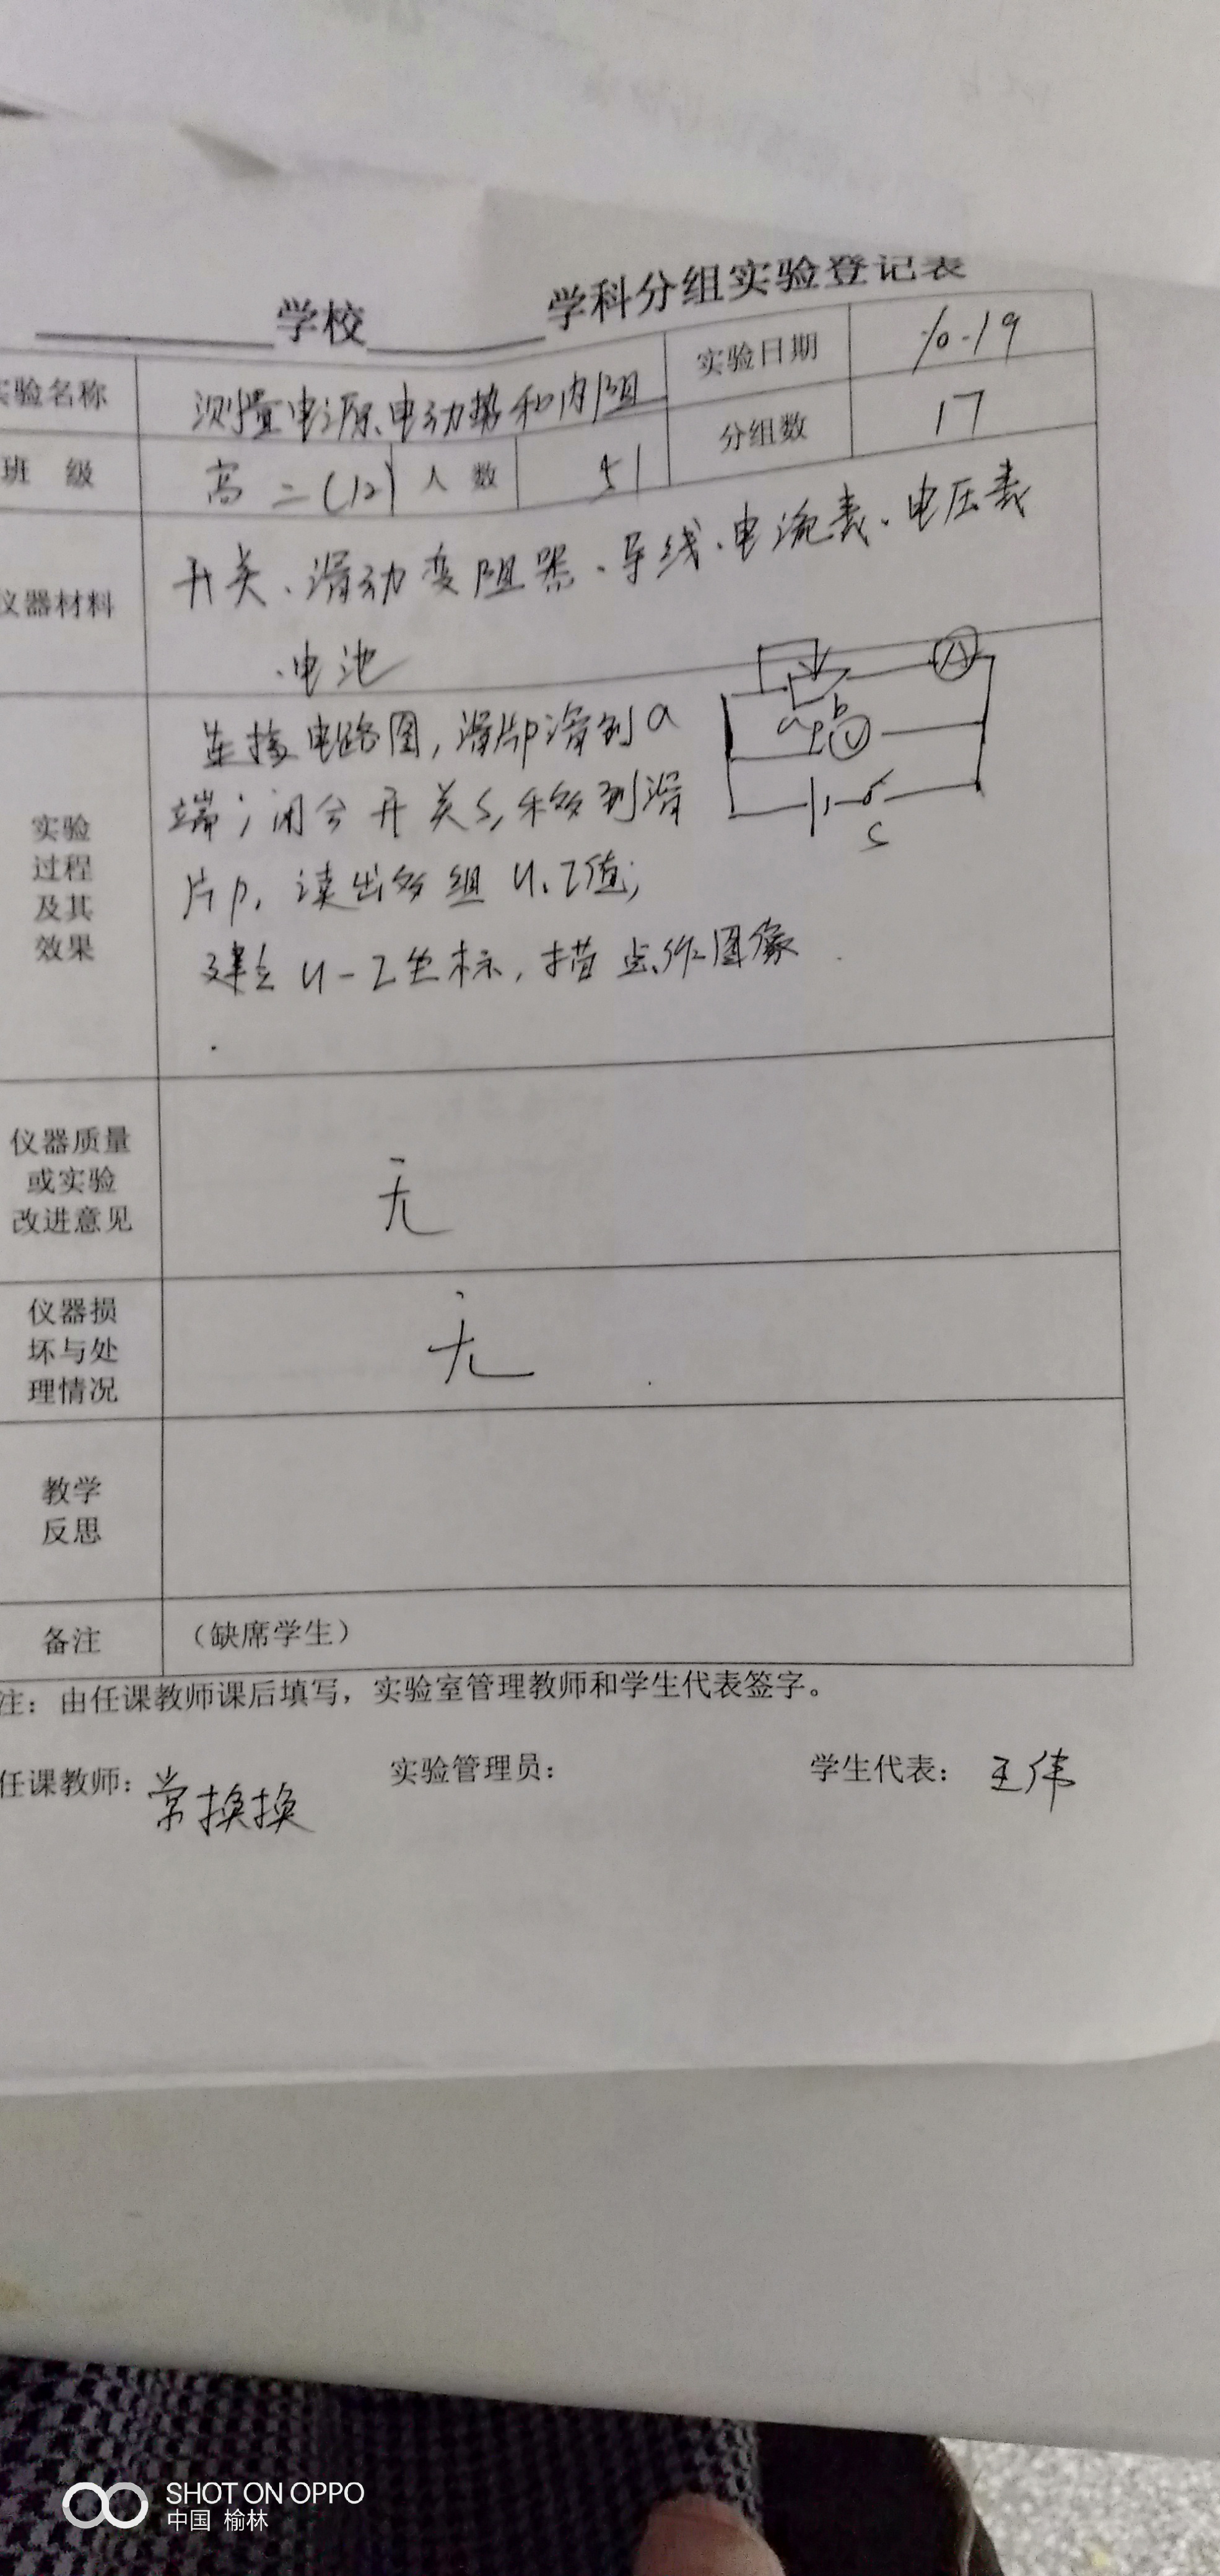 学校 学科分组实验登记表
实验名称 测量电源电动势和内阻 实验日期 10.19
班 级 高二(12) 人 数 51 分组数 17
仪器材料 开关、滑动变阻器、导线、电流表、电压表
、电池
A
a b
P V
S
实验
过程
及其
效果
连接电路图,滑片P滑到a
端;闭合开关S,移动滑
片P,读出多组U、I值;
建立U-I坐标,描点、作图像
仪器质量
或实验
改进意见
无
仪器损
坏与处
理情况
无
教学
反思
备注 (缺席学生)
注:由任课教师课后填写,实验室管理教师和学生代表签字。
任课教师: 常换换 实验管理员: 学生代表: 王伟
SHOT ON OPPO
中国 榆林